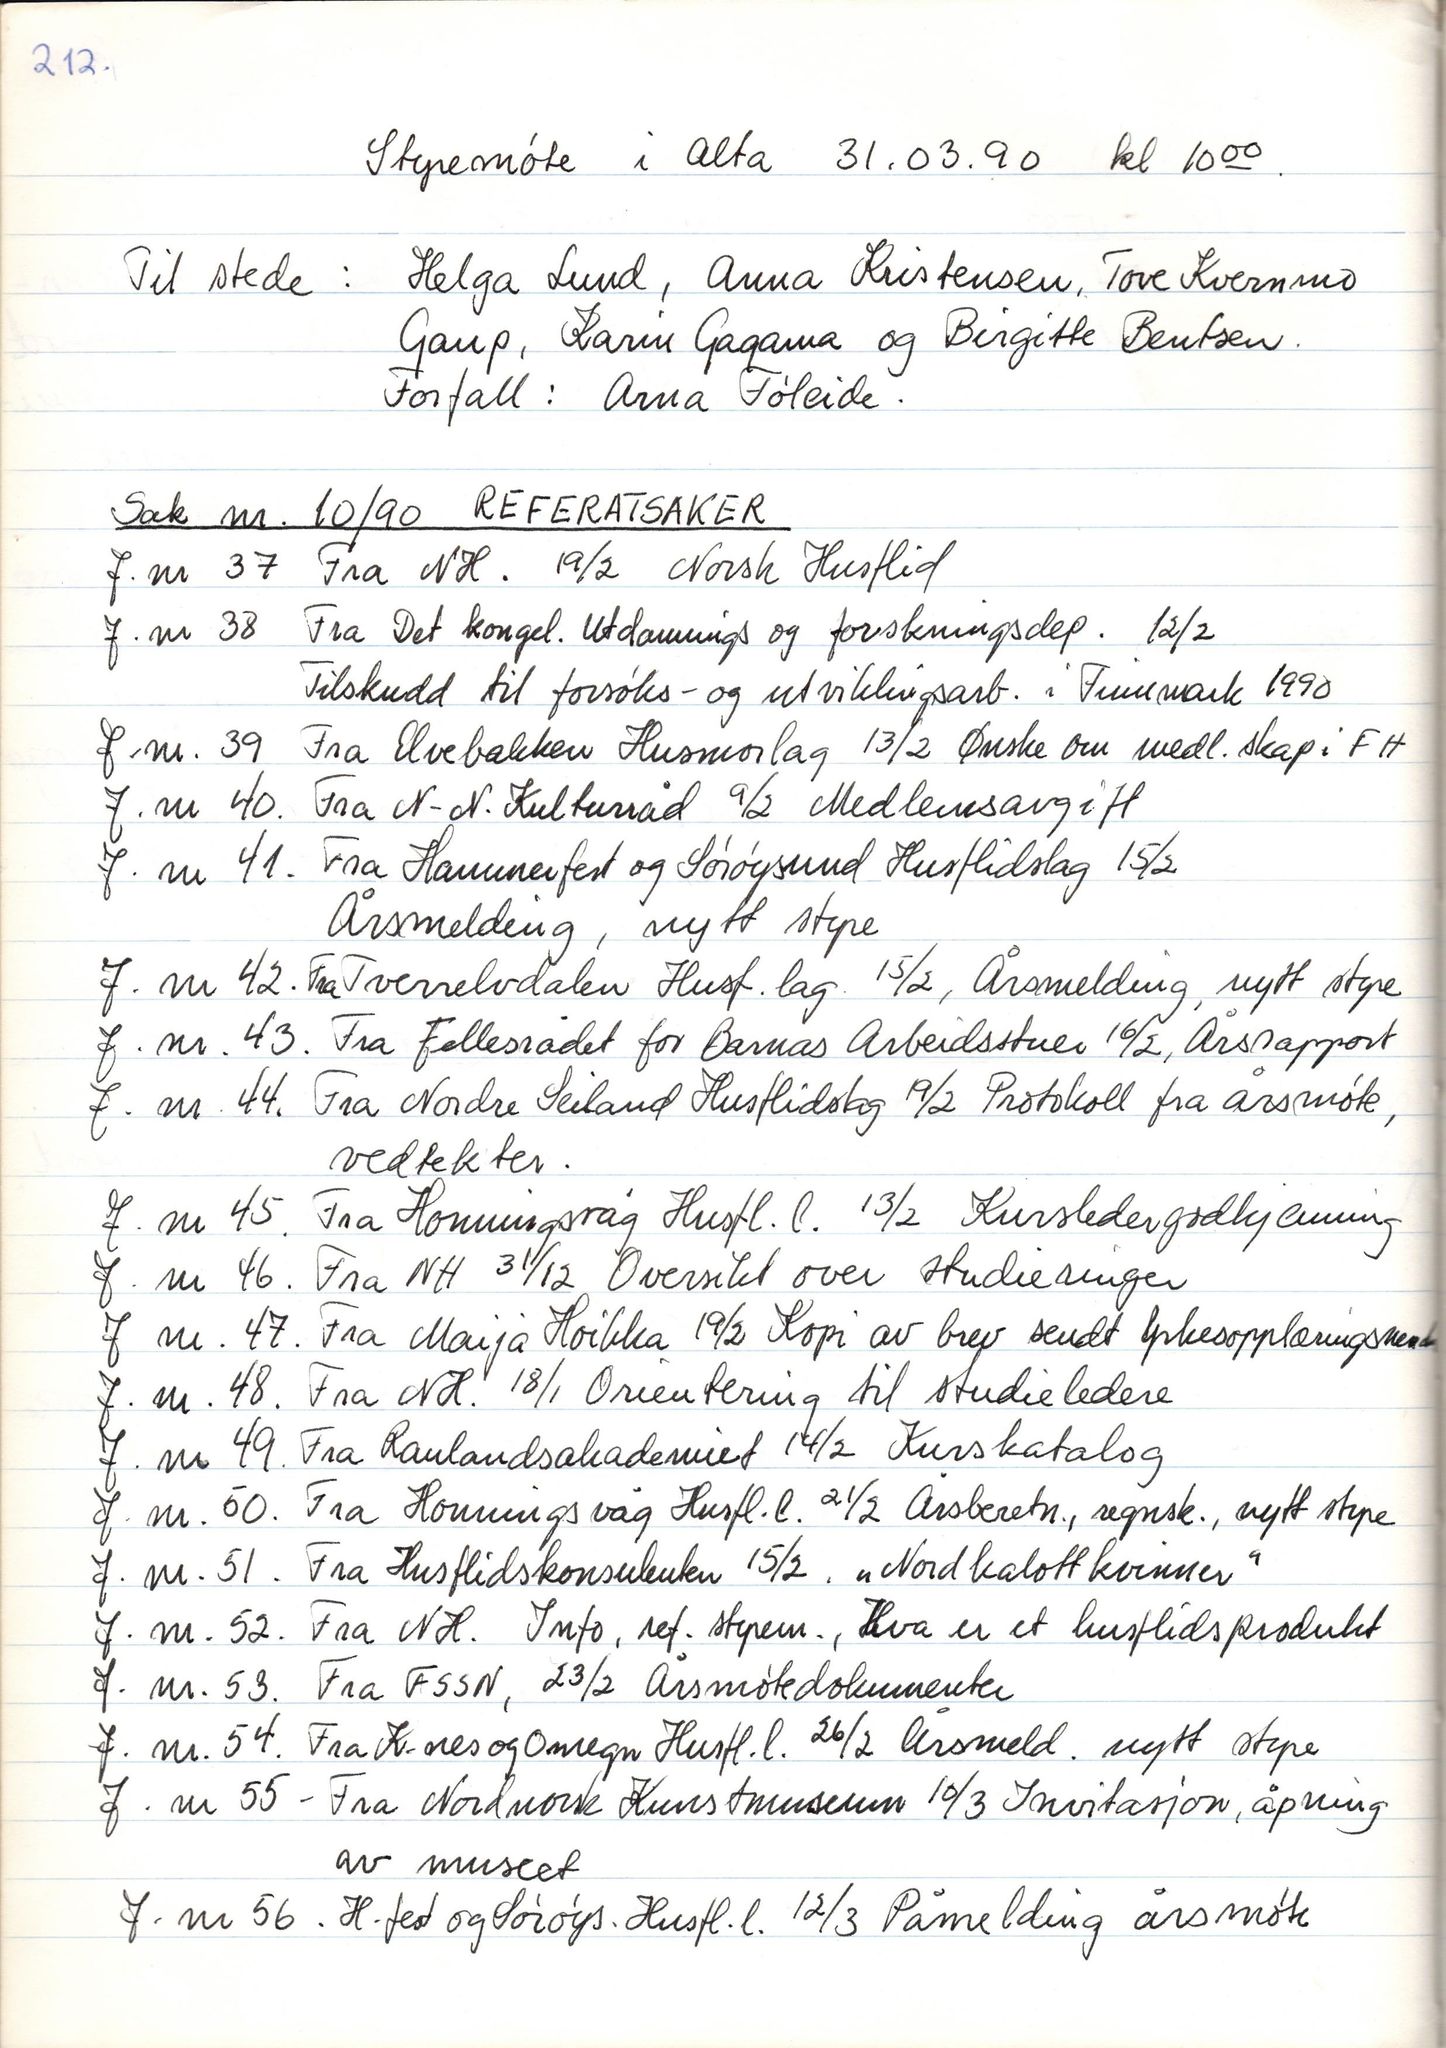 212.
Styremøte i Alta 31.03.90 kl 10⁰⁰.
Til stede : Helga Lund, Anna Kristensen, Tove Kvernmo
Gaup, Karin Gagama og Birgitte Bentsen.
Forfall : Arna Tøleide.
Sak nr. 10/90 REFERATSAKER
J. nr 37 Fra NH. 19/2 Norsk Husflid
J. nr 38 Fra Det kongel. Utdannings og forskningsdep. 12/2
Tilskudd til forsøks- og utviklingsarb. i Finnmark 1990
J. nr. 39 Fra Elvebakken Husmorlag 13/2 Ønske om medl. skap i FH
J. nr 40. Fra N-N. Kulturråd 9/2 Medlemsavgift
J. nr 41. Fra Hammerfest og Sørøysund Husflidslag 15/2
Årsmelding, nytt styre
J. nr 42. Fra Tverrelvdalen Husf. lag 15/2, Årsmelding, nytt styre
J. nr. 43. Fra Fellesrådet for Barnas Arbeidsstuer 16/2, Årsrapport
J. nr. 44. Fra Nordre Seiland Husflidslag 19/2 Protokoll fra årsmøte,
vedtekter.
J. nr 45. Fra Honningsvåg Husfl. l. 13/2 Kursledergodkjenning
J. nr 46. Fra NH 31/12 Oversikt over studieringer
J nr. 47. Fra Maija Hoikka 19/2 Kopi av brev sendt Yrkesopplæringsnemnda
J. nr. 48. Fra NH. 18/1 Orientering til studieledere
J. nr 49. Fra Raulandsakademiet 14/2 Kurskatalog
J. nr. 50. Fra Honningsvåg Husfl. l. 21/2 Årsberetn., regnsk., nytt styre
J. nr. 51. Fra Husflidskonsulenten 15/2. „Nordkalottkvinner"
J. nr. 52. Fra NH. Info, ref. styrem., Hva er et husflidsprodukt
J. nr. 53. Fra FSSN, 23/2 Årsmøtedokumenter
J. nr. 54. Fra K-nes og Omegn Husfl. l. 26/2 Årsmeld. nytt styre
J. nr 55 - Fra Nordnorsk Kunstmuseum 10/3 Invitasjon, åpning
av museet
J. nr 56. H.fest og Sørøys. Husfl. l. 12/3 Påmelding årsmøte